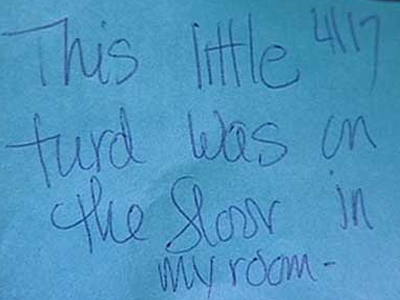 This little 4/17
turd was on
the floor in
my room-